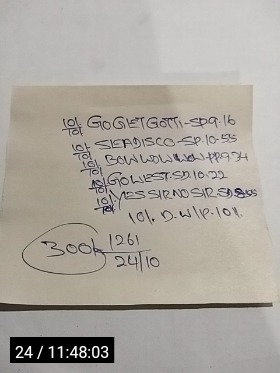 10/10 GOGIETGOTTI-SP.9.16
10/10 SIEADISCO-SP.10-55
10/10 BOWWOWWOW-PP.9.24
10/10 GOWEST-SP.10.22
10/10 YES SIR NO SIR SP
10/. D.W/P.101.
300k 1261
24/10
24 / 11:48:03